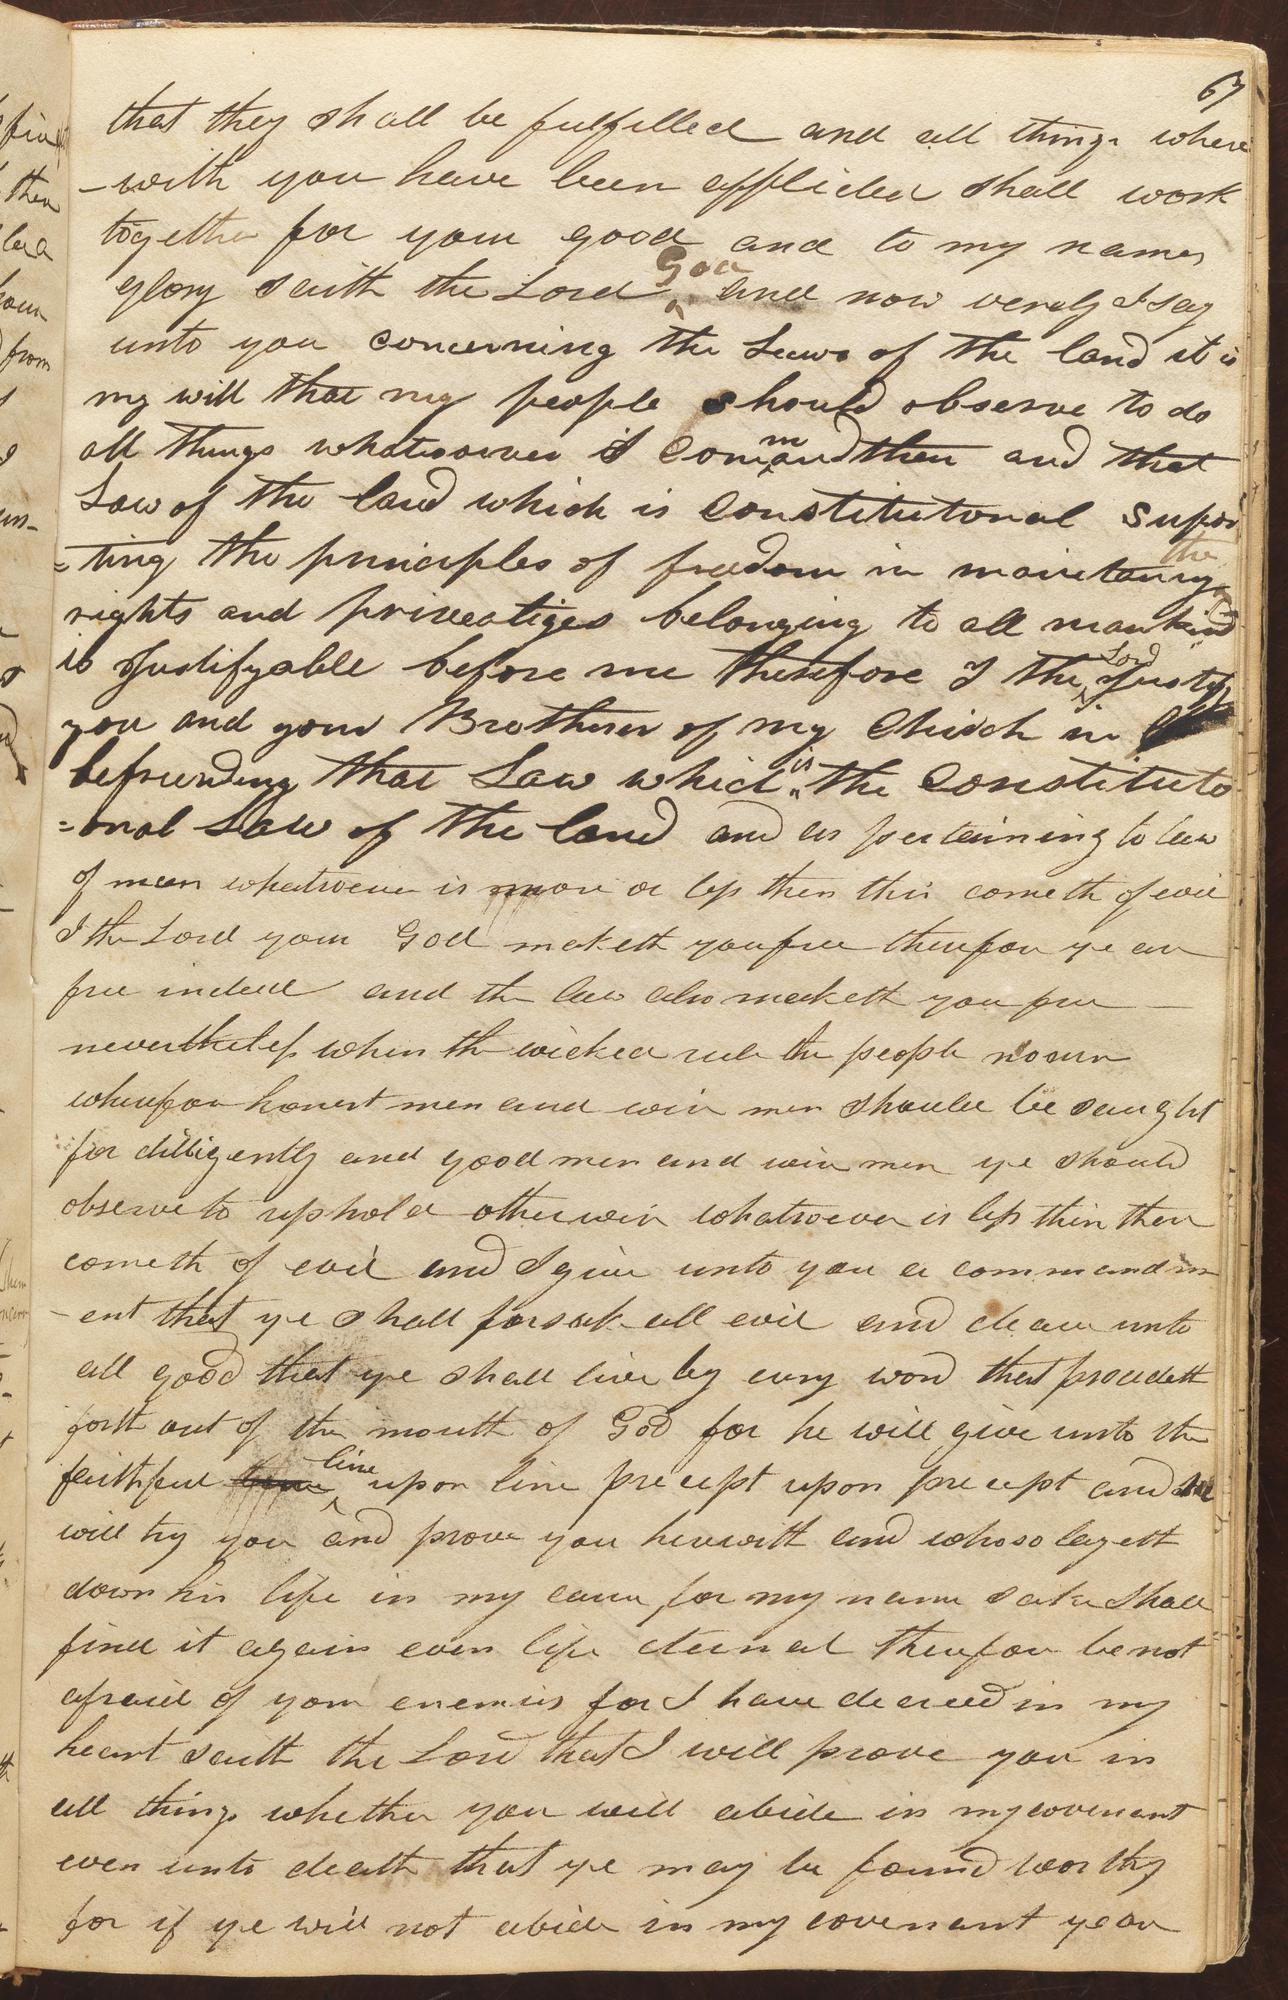 67
that they shall be fulfilled and all things where
-with you have been afflicted shall work
together for your good and to my names
glory saith the Lord God and now verely I say
unto you concerning the Laws of the land it is
my will that my people should observe to do
all things whatsoever I command them and that
Law of the land which is Constitutonal suppor
=ting the principles of freedom in maintaning the
rights and priveliges belonging to all mankind
is Justifyable before me therefore I the Lord Justify
you and your Brotheren of my Church in
befriending that Law which is the Constituto
=onal Law of the land and as pertaining to law
of man whatsoever is more or less then this cometh of evil
I the Lord your God maketh you free therefore ye are
free indeed and the law also maketh you free
nevertheless when the wicked rule the people mourn
wherefore honest men and wise men should be saught
for dilligently and good men and wise men ye should
observe to uphold otherwise whatsoever is less then these
cometh of evil and I give unto you a commandm
-ent that ye shall forsake all evil and cleave unto
all good that ye shall live by evry word that procedeth
forth out of the mouth of God for he will give unto the
faithful line upon line precept upon precept and I
will try you and prove you herewith and whoso layeth
down his life in my cause for my name sake shall
find it again even life eternal therefore be not
afraid of your enemies for I have decreed in my
heart saith the Lord that I will prove you in
all things whether you will abide in my covenant
even unto death that ye may be found worthy
for if ye will not abide in my covenant ye are